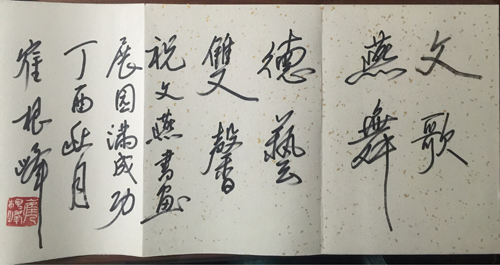 文歌
燕舞
德藝
雙馨
祝文燕書画
展圆满成功
丁酉秋月
崔根峰